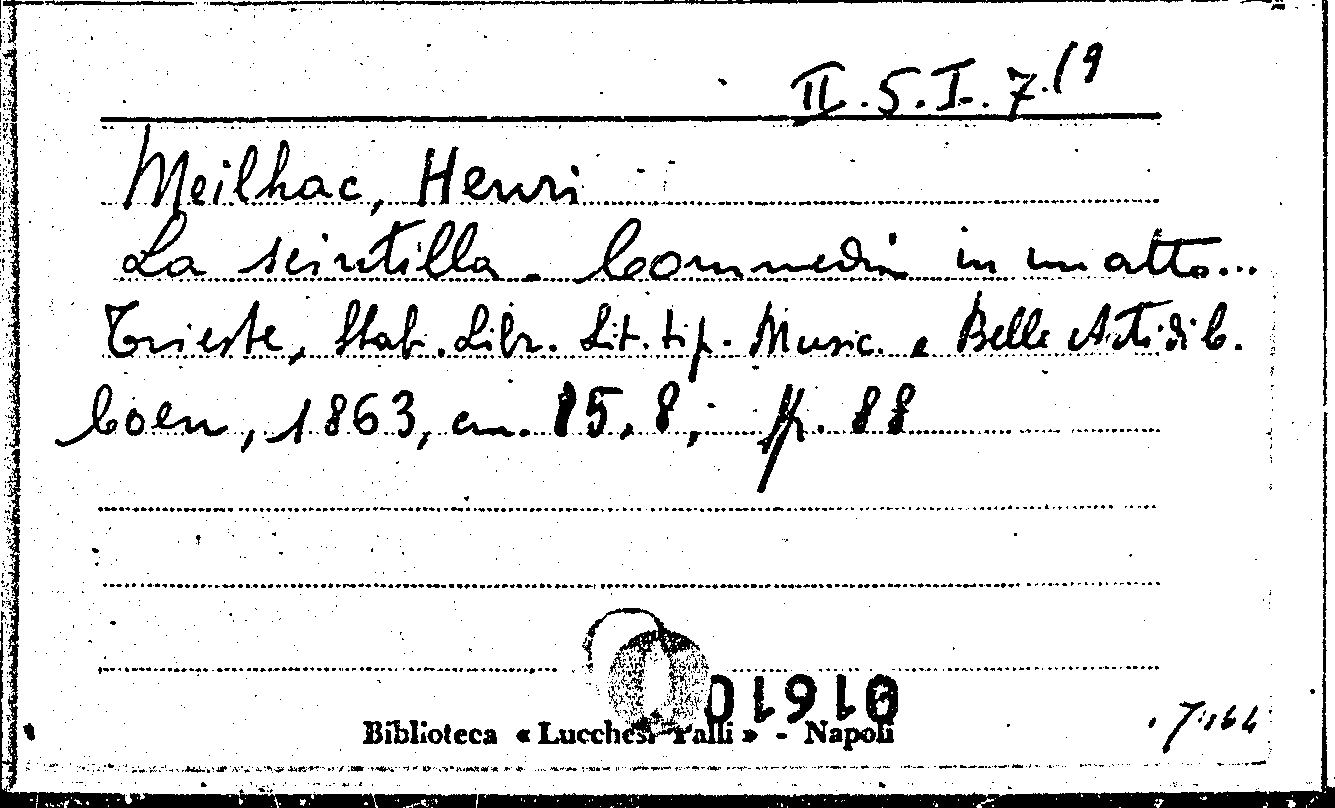 II.5.I.7.(9
Meilhac, Henri
La scintilla. Commedia in un atto...
Trieste, Stab. Libr. Lit. tip. Music. e Belle Arti di C.
Coen, 1863, cm. 15,8; pp. 88
01910
Biblioteca « Lucchesi Palli » - Napoli